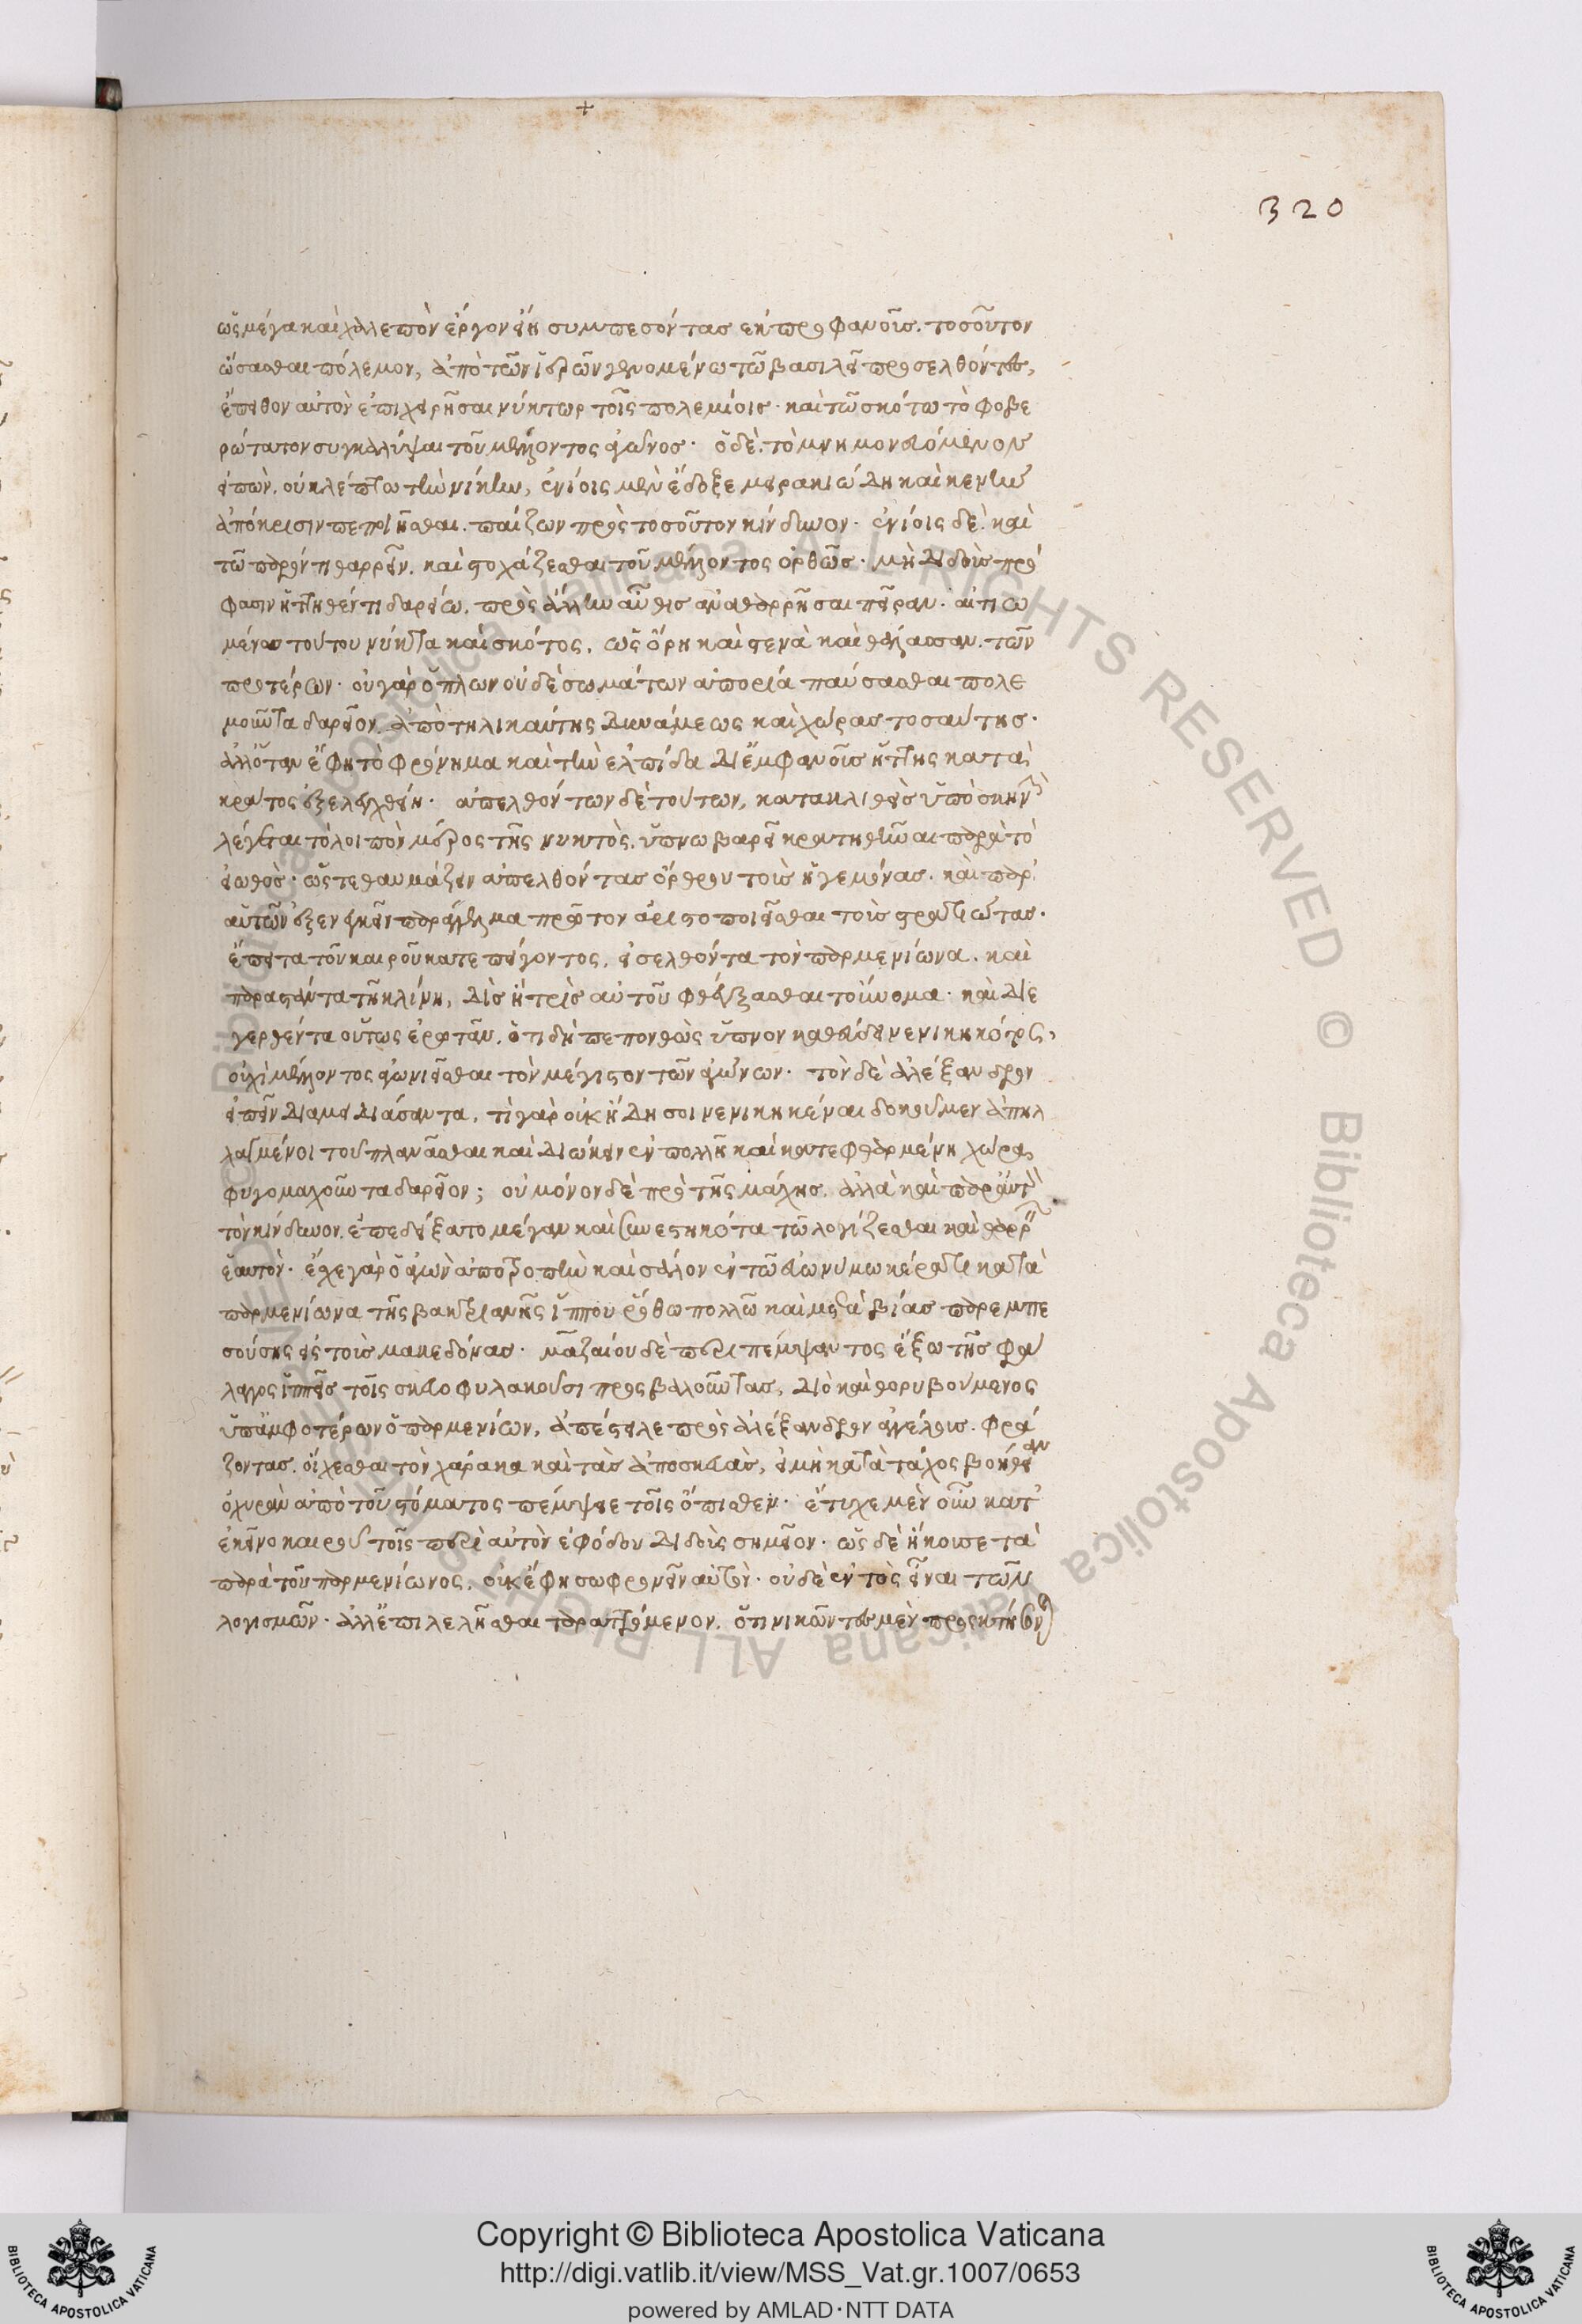 320
ὡς μέγα καὶ χαλεπὸν ἔργον εἴη συμπεσόντας ἐκ προφανοῦς τοσοῦτον
ὤσασθαι πόλεμον, ἀπὸ τῶν ἱερῶν γενομένω τῶ βασιλεῖ προσελθόντες,
ἔπειθον αὐτὸν ἐπιχειρῆσαι νύκτωρ τοῖς πολεμίοις· καὶ τῶ σκότω τὸ φοβε
ρώτατον συγκαλύψαι τοῦ μέλλοντος ἀγῶνος· ὁ δὲ τὸ μνημονευόμενον
εἰπὼν, οὐ κλέπτω τὴν νίκην, ἐνίοις μὲν ἔδοξε μειρακιώδη καὶ κενὴν
ἀπόκρισιν πεποιῆσθαι, παίζων πρὸς τοσοῦτον κίνδυνον· ἐνίοις δὲ καὶ
τῶ παρόντι θαρρεῖν, καὶ στοχάζεσθαι τοῦ μέλλοντος ὀρθῶς· μὴ διδοὺς πρό
φασιν ἡττηθέντι δαρείω, πρὸς ἄλλην αὖθις ἀναθαρρῆσαι πεῖραν· αἰτιω
μένω τούτου νύκτα καὶ σκότος, ὡς ὄρη καὶ στενὰ καὶ θάλασσαν τῶν
προτέρων· οὐ γὰρ ὅπλων οὐδὲ σωμάτων ἀπορία παύσασθαι πολε
μοῦντα δαρεῖον, ἀπὸ τηλικαύτης δυνάμεως καὶ χώρας τοσαύτης·
ἀλλ' ὅταν ἔφη τὸ φρόνημα καὶ τὴν ἐλπίδα δι' ἐμφανοῦς ἥττης κατὰ
κράτος ἐξελεγχθείη· ἀπελθόντων δὲ τούτων, κατακλιθεὶς ὑπὸ σκηνὴν
λέγεται τὸ λοιπὸν μέρος τῆς νυκτὸς, ὕπνω βαρεῖ κρατηθῆναι παρὰ τὸ
εἰωθὸς· ὥστε θαυμάζειν ἀπελθόντας ὄρθρου τοὺς ἡγεμόνας· καὶ παρ'
αὐτῶν ἐξενεγκεῖν παράγγελμα πρῶτον ἀριστοποιεῖσθαι τοὺς στρατιώτας·
ἔπειτα τοῦ καιροῦ κατεπείγοντος, εἰσελθόντα τὸν παρμενίωνα, καὶ
παραστάντα τῆ κλίνη, δὶς ἢ τρὶς αὐτοῦ φθέγξασθαι τοὔνομα· καὶ διε
γερθέντα οὕτως ἐρωτᾶν, ὅτι δὴ πεπονθὼς ὕπνον καθεύδει νενικηκότος,
οὐχὶ μέλλοντος ἀγωνιεῖσθαι τὸν μέγιστον τῶν ἀγώνων· τὸν δὲ ἀλέξανδρον
εἰπεῖν διαμειδιάσαντα, τί γὰρ οὐκ ἤδη σοι νενικηκέναι δοκοῦμεν ἀπηλ
λαγμένοι τοῦ πλανᾶσθαι καὶ διώκειν ἐν πολλῆ καὶ κατεφθαρμένη χώρα
φυγομαχοῦντα δαρεῖον; οὐ μόνον δὲ πρὸ τῆς μάχης, ἀλλὰ καὶ παρ' αὐτὸν
τὸν κίνδυνον, ἐπεδείξατο μέγαν καὶ συνεστηκότα τῶ λογίζεσθαι καὶ θαρρεῖν
ἑαυτὸν· ἔσχε γὰρ ὁ ἀγὼν ἀποτροπὴν καὶ σάλον ἐν τῶ εὐωνύμω κέρατι κατὰ
παρμενίωνα τῆς βακτριανῆς ἵππου ῥόθω πολλῶ καὶ μετὰ βίας παρεμπε
σούσης εἰς τοὺς μακεδόνας· μαζαίου δὲ περιπέμψαντος ἔξω τῆς φάλ
λαγγος ἱππεῖς τοῖς σκευοφυλακοῦσι προσβαλοῦντας, διὸ καὶ θορυβούμενος
ὑπ' ἀμφοτέρων ὁ παρμενίων, ἀπέστειλε πρὸς ἀλέξανδρον ἀγγέλους φρά
ζοντας, οἴχεσθαι τὸν χάρακα καὶ τὰς ἀποσκευὰς, εἰ μὴ κατὰ τάχος βοήθειαν
ὀχυρὰν ἀπὸ τοῦ στόματος πέμψειε τοῖς ὄπισθεν· ἔτυχε μὲν οὖν κατ'
ἐκεῖνο καιροῦ τοῖς περὶ αὐτὸν ἐφόδου διδοὺς σημεῖον· ὡς δὲ ἤκουσε τὰ
παρὰ τοῦ παρμενίωνος, οὐκ ἔφη σωφρονεῖν αὐτὸν· οὐδὲ ἐντὸς εἶναι τῶν
λογισμῶν· ἀλλ' ἐπιλελῆσθαι ταραττόμενον, ὅτι νικῶντες μὲν προσκτήσονται